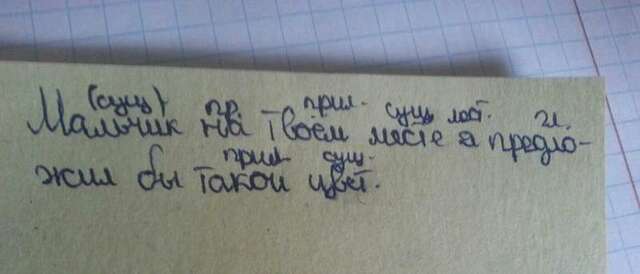 (сущ) пр. прил. сущ. мест. гл.
Мальчик на твоём месте я предло-
прил. сущ.
жил бы такой цвет.